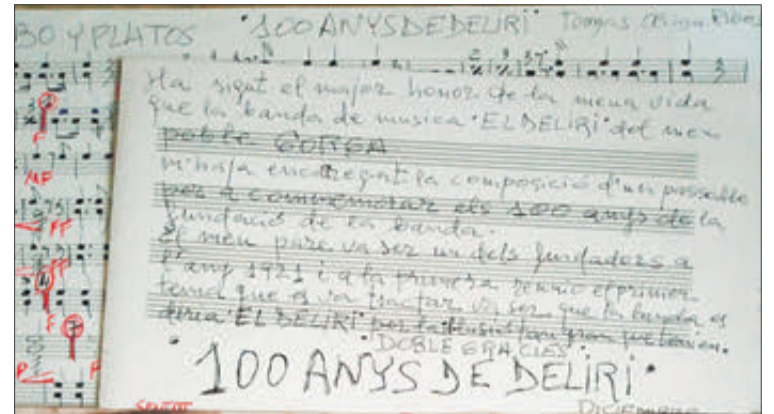 BO Y PLATOS "100 ANYS DE DELIRI" Tomás Olcina Ribes
Ha sigut el major honor de la meua vida
que la banda de musica "EL DELIRI" del meu
poble GORGA
m'haja encarregat la composició d'un passoble
per a commemorar els 100 anys de la
fundació de la banda.
El meu pare va ser un dels fundadors a
l'any 1921 i a la primera reunió el primer
tema que es va tractar va ser que la banda es
diria "EL DELIRI" per la ilusió tan gran que tenien.
"DOBLE GRACIES"
"100 ANYS DE DELIRI"
F
MF
FF
F
P
P